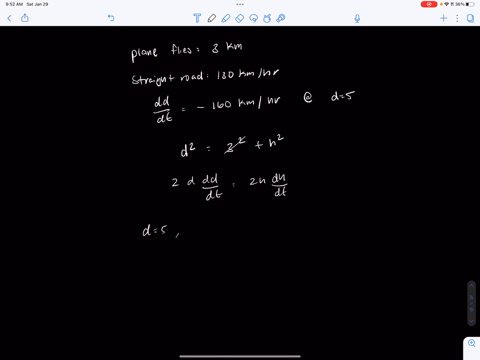 9:52 AM Sat Jan 29
36%
plane flies: 3 km
straight road: 130 km/hr
dd/dt = - 160 km/hr @ d=5
d² = 3² + h²
2 d dd/dt = 2h dh/dt
d=5,